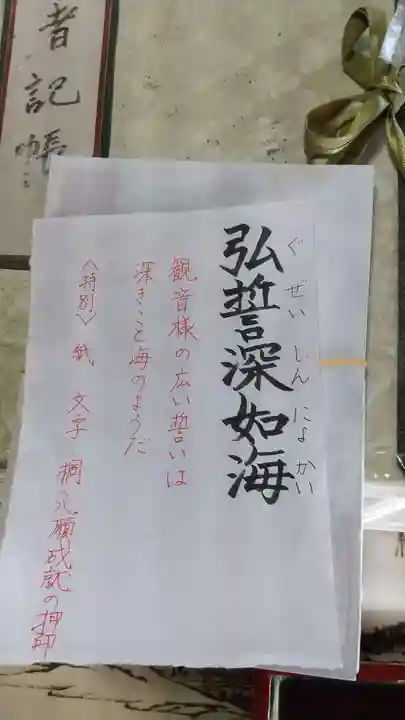 弘誓深如海
ぐぜいしんにょかい
観音様の広い誓いは
深きこと海のようだ
〈特別〉紙 文字 心願成就の押印
者記帳